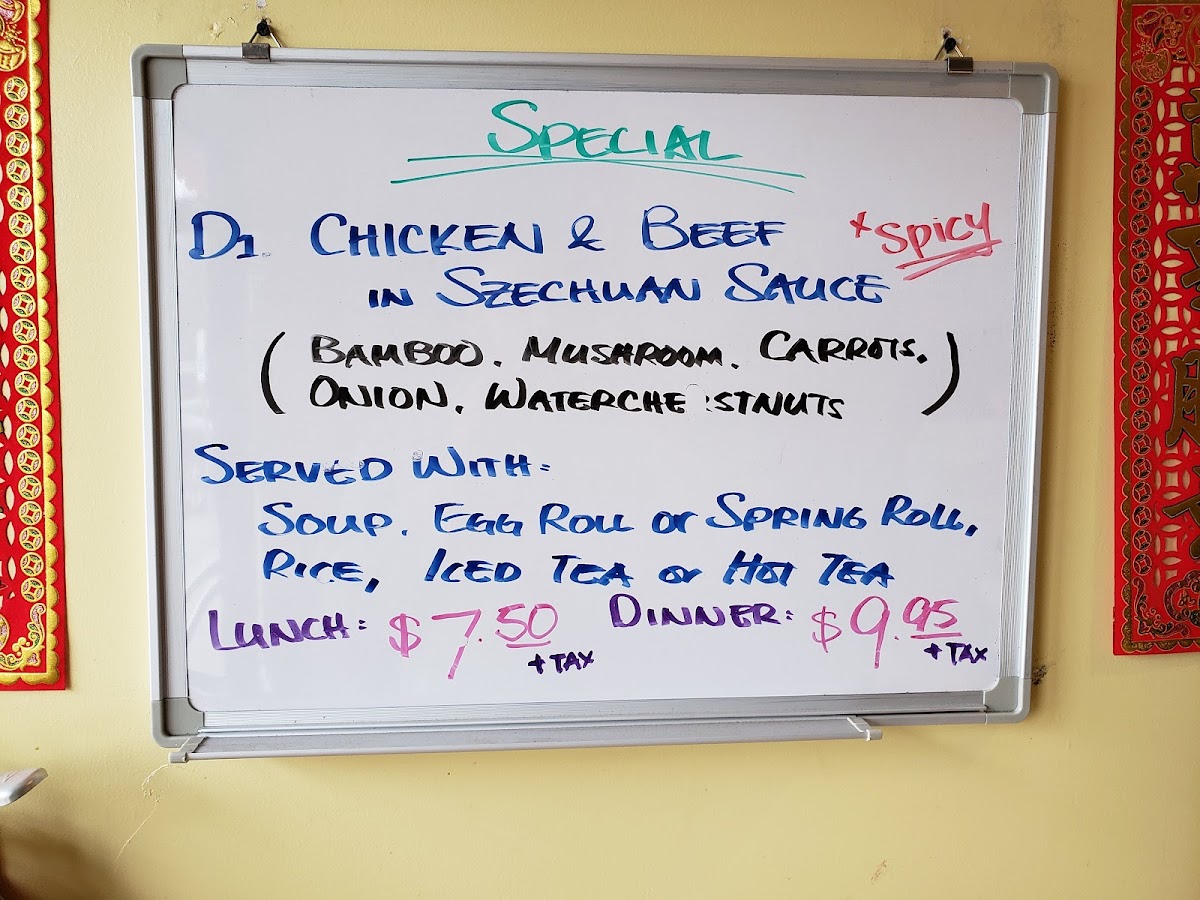 SPECIAL
D1. CHICKEN & BEEF *SPICY
IN SZECHUAN SAUCE
( BAMBOO, MUSHROOM, CARROTS, )
ONION, WATERCHESTNUTS
SERVED WITH:
SOUP, EGG ROLL or SPRING ROLL,
RICE, ICED TEA or HOT TEA
LUNCH: $7.50 DINNER: $9.95
+ TAX + TAX